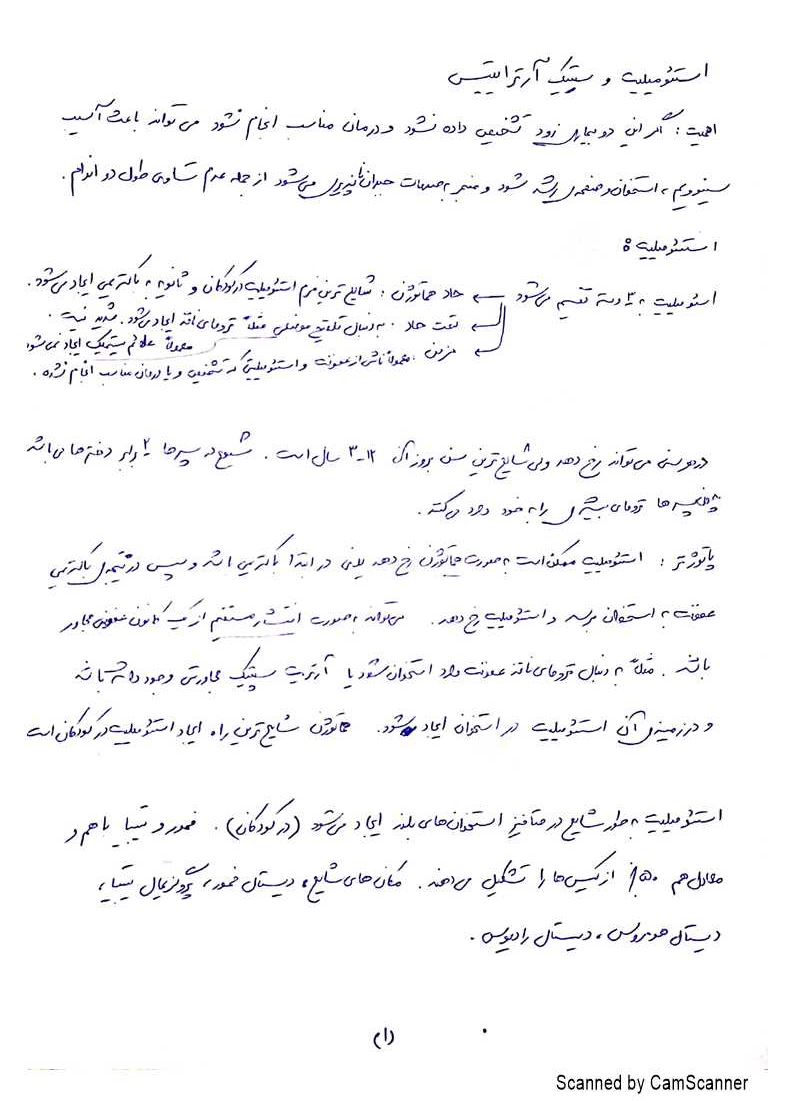 استئومیلیت و سپتیک آرتراییتیس
اهمیت: اگر این دو بیماری زود تشخیص داده نشود و درمان مناسب انجام نشود می تواند باعث آسیب
سینوویم، استخوان و صفحه ی رشد شود و منجر به صدمات جبران ناپذیری می شود از جمله عدم تساوی طول دو اندام.
استئومیلیت:
استئومیلیت به ۳ دسته تقسیم می شود
حاد هماتوژن: شایع ترین فرم استئومیلیت در کودکان و ثانویه به باکتریمی ایجاد می شود.
تحت حاد: به دنبال تلقیح موضعی مثلاً ترومای نافذ ایجاد می شود. شدید نیست.
معمولاً علائم سیستمیک ایجاد نمی شود
مزمن: معمولاً ناشی از عفونت و استئومیلیتی که تشخیص و یا درمان مناسب انجام نشده.
در هر سنی می تواند رخ دهد ولی شایع ترین سن بروز آن ۱۲-۳ سال است. شیوع در پسرها ۲ برابر دخترها می باشد
چون پسرها ترومای بیشتری را به خود وارد می کنند.
پاتوژنز: استئومیلیت ممکن است به صورت هماتوژن رخ دهد یعنی در ابتدا باکتریمی باشد و سپس در نتیجه ی باکتریمی
عفونت به استخوان برسد و استئومیلیت رخ دهد. می تواند به صورت انتشار مستقیم از یک کانون عفونی مجاور
باشد. مثلاً به دنبال ترومای نافذ عفونت وارد استخوان شود یا آرتریت سپتیک مجاورتی وجود داشته باشد
و در زمینه ی آن استئومیلیت در استخوان ایجاد شود. هماتوژن شایع ترین راه ایجاد استئومیلیت در کودکان است
استئومیلیت به طور شایع در متافیز استخوان های بلند ایجاد می شود (در کودکان). فمور و تیبیا با هم و
معادل هم ۵۰٪ از کیس ها را تشکیل می دهند. مکان های شایع، دیستال فمور، پروگزیمال تیبیا،
دیستال هومروس، دیستال رادیوس.
(۱)
Scanned by CamScanner